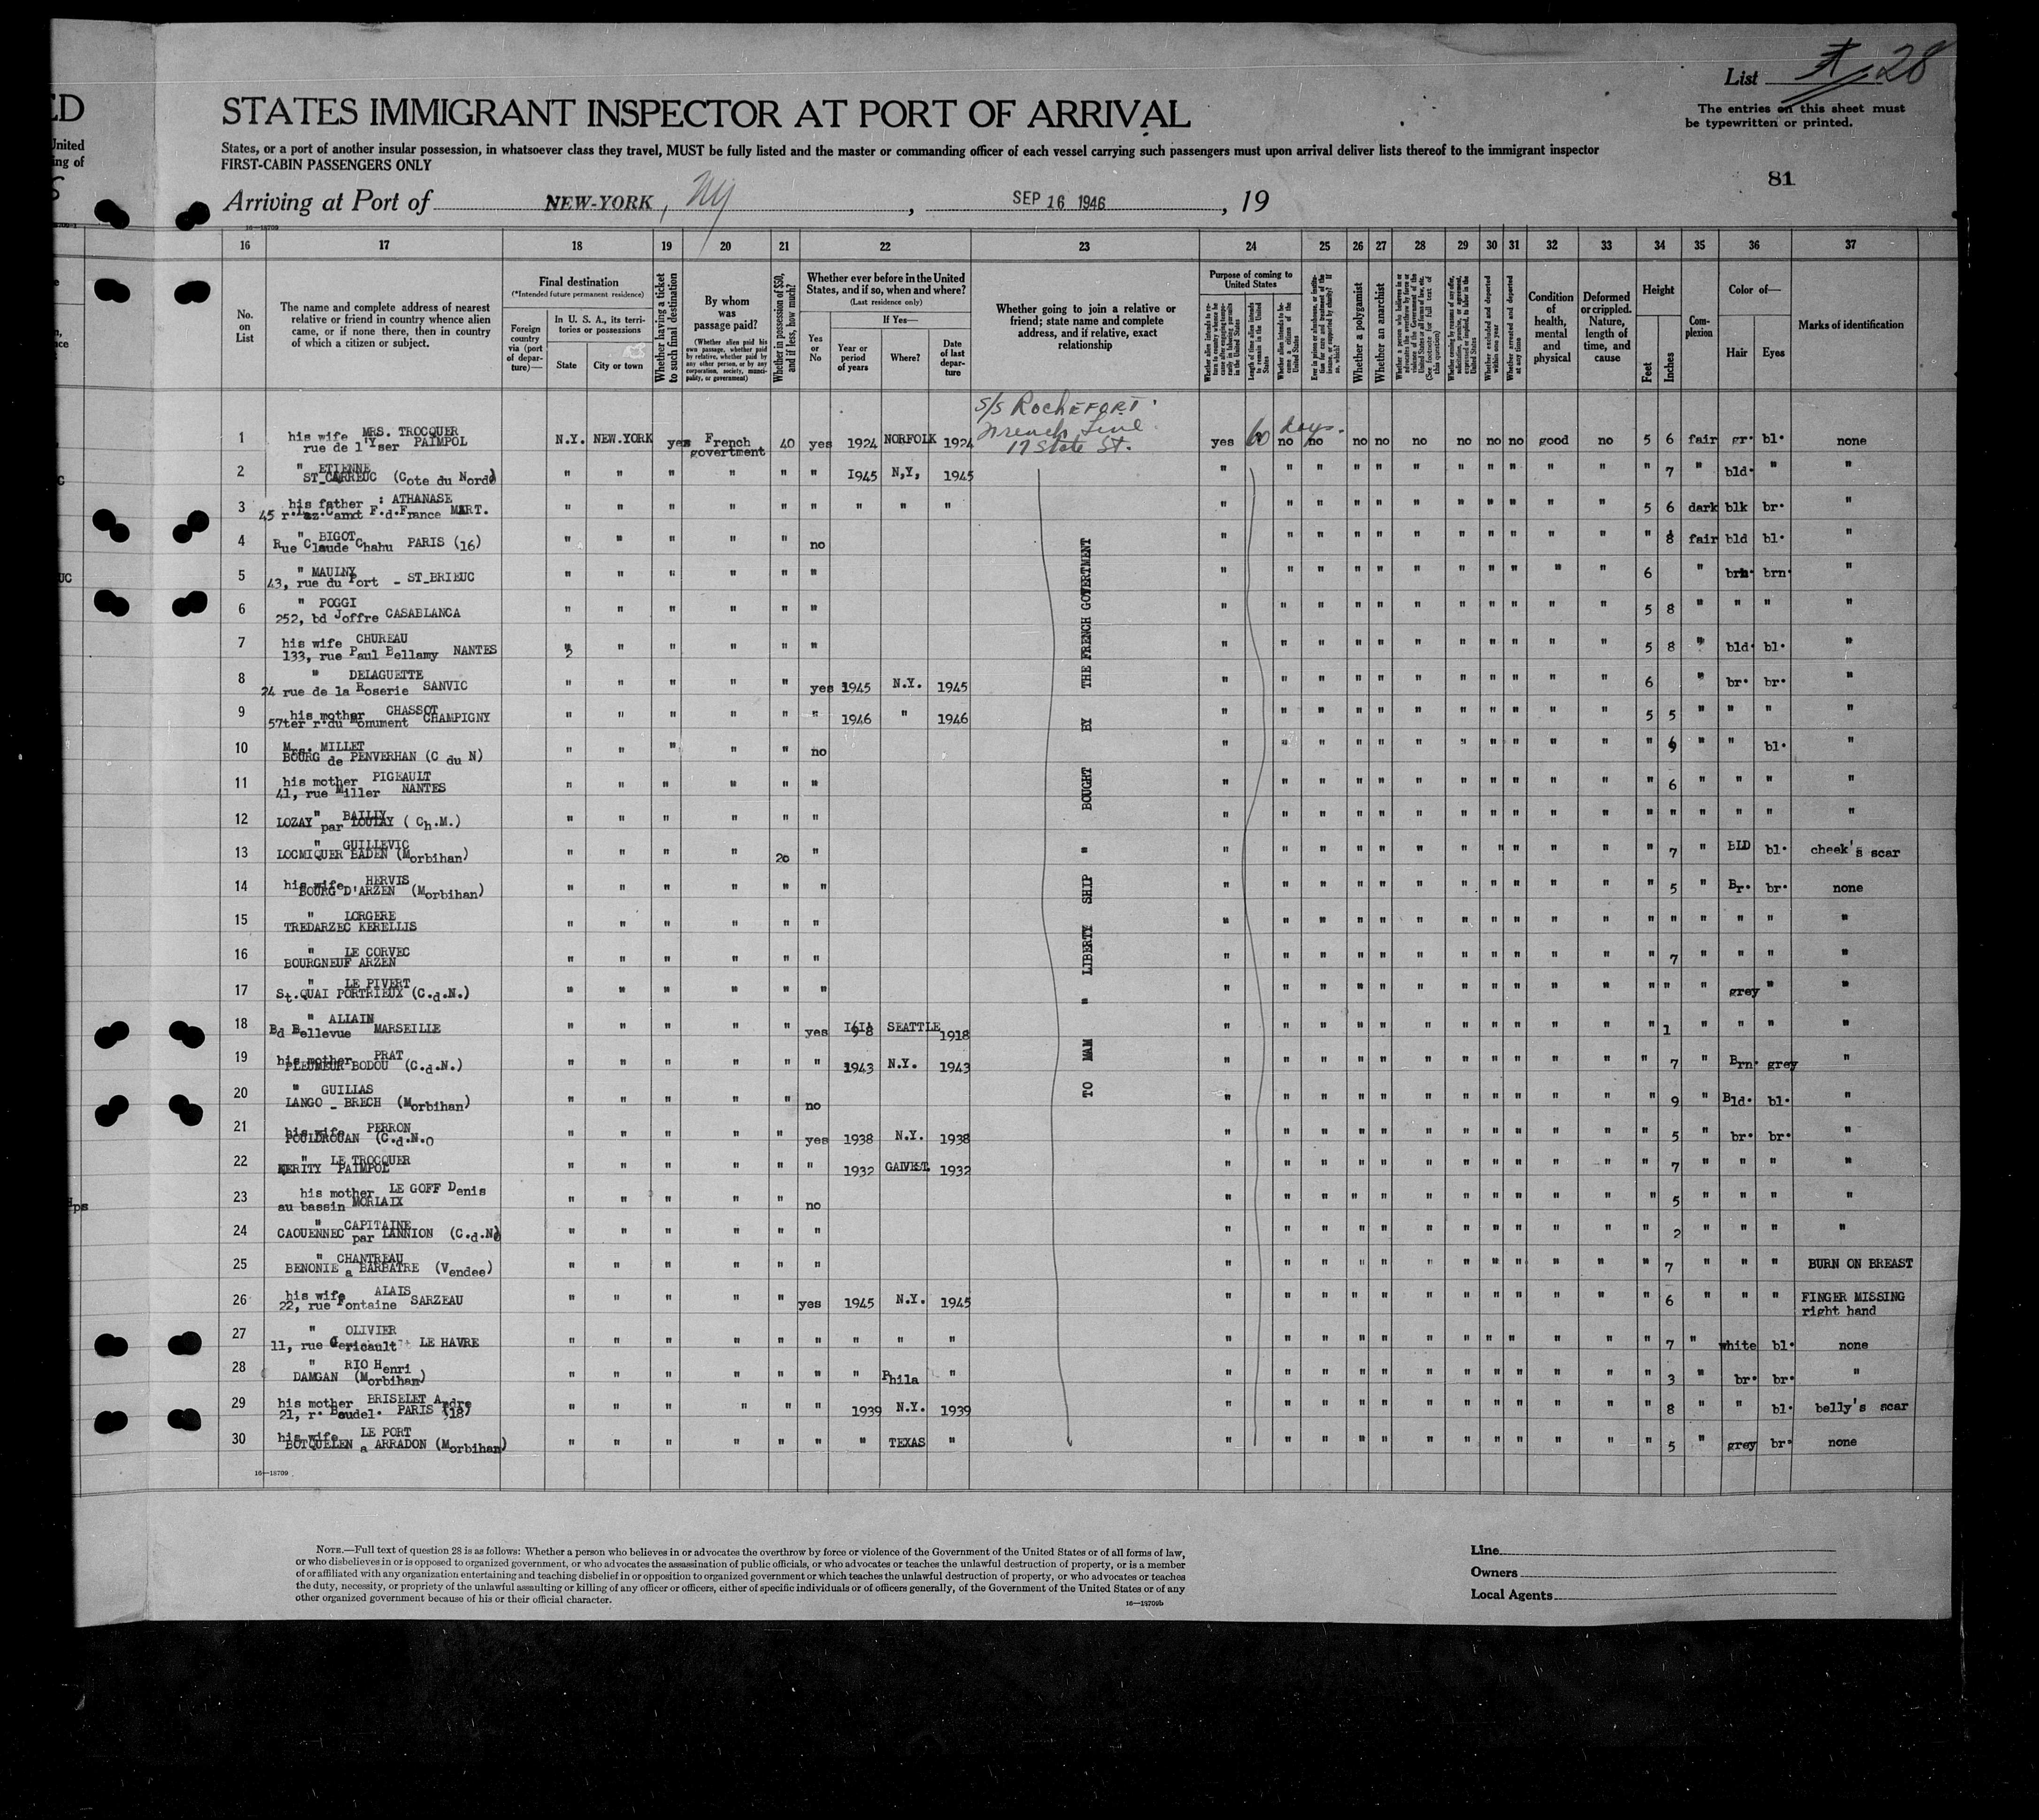 List 28
The entries on this sheet must
be typewritten or printed.
ED
STATES IMMIGRANT INSPECTOR AT PORT OF ARRIVAL
United
ing of
States, or a port of another insular possession, in whatsoever class they travel, MUST be fully listed and the master or commanding officer of each vessel carrying such passengers must upon arrival deliver lists thereof to the immigrant inspector
FIRST-CABIN PASSENGERS ONLY
81
Arriving at Port of NEW-YORK, NY, SEP 16 1946, 19
16—18709
16 17 18 19 20 21 22 23 24 25 26 27 28 29 30 31 32 33 34 35 36 37
No. on List
The name and complete address of nearest relative or friend in country whence alien came, or if none there, then in country of which a citizen or subject.
Final destination
(*Intended future permanent residence)
Foreign country via (port of departure)—
In U. S. A., its territories or possessions
State
City or town
Whether having a ticket to such final destination
By whom was passage paid?
(Whether alien paid his own passage, whether paid by relative, whether paid by any other person, or by any corporation, society, municipality, or government)
Whether in possession of $50, and if less, how much?
Whether ever before in the United States, and if so, when and where?
(Last residence only)
Yes or No
If Yes—
Year or period of years
Where?
Date of last departure
Whether going to join a relative or friend; state name and complete address, and if relative, exact relationship
Purpose of coming to United States
Length of time alien intends to remain in the United States
Whether alien intends to become a citizen of the United States
Whether a polygamist
Whether an anarchist
(See footnote for full text of this question)
Whether excluded and deported within one year
Whether arrested and deported at any time
Condition of health, mental and physical
Deformed or crippled. Nature, length of time, and cause
Height
Feet
Inches
Complexion
Color of—
Hair
Eyes
Marks of identification
S/S ROCHEFORT
French Line
17 State St.
60 days.
1 his wife MRS. TROCQUER
rue de l'Yser PAIMPOL N.Y. NEW.YORK yes French govertment 40 yes 1924 NORFOLK 1924 yes no no no no no no no no good no 5 6 fair gr. bl. none
2 " ETIENNE
ST_CARREUC (Cote du Nord) " " " " " " 1945 N,Y, 1945 " " " " " " " " " " " " 7 " bld. " "
3 his father : ATHANASE
45 r. Laz.Carnt F.d.France MART. " " " " " " " " " " " " " " " " " " " " " 5 6 dark blk br. "
4 " BIGOT
Rue Claude Chahu PARIS (16) " " " " " no " " " " " " " " " " " " 8 fair bld bl. "
5 " MAULNY
43, rue du Port - ST_BRIEUC " " " " " " " " " " " " " " " " " 6 " brn. brn. "
6 " POGGI
252, bd Joffre CASABLANCA " " " " " " " " " " " " " " " " " 5 8 " " " "
7 his wife CHUREAU
133, rue Paul Bellamy NANTES " " " " " " " " " " " " " " " " " 5 8 " bld. bl. "
8 " DELAGUETTE
24 rue de la Roserie SANVIC " " " " " yes 1945 N.Y. 1945 " " " " " " " " " " " 6 " br. br. "
9 his mother CHASSOT
57ter r.du Monument CHAMPIGNY " " " " " " 1946 " 1946 " " " " " " " " " " " 5 5 " " " "
10 Mrs. MILLET
BOURG de PENVERHAN (C du N) " " " " " no " " " " " " " " " " " " " " bl. "
11 his mother PIGEAULT
41, rue Miller NANTES " " " " " " " " " " " " " " " " " " 6 " " " "
12 " BAILLY
LOZAY par LOULAY ( Ch.M.) " " " " " " " " " " " " " " " " " " " " " " "
13 " GUILLEVIC
LOCMIQUER BADEN (Morbihan) " " " " 20 " " " " " " " " " " " " " 7 " BLD bl. cheek's scar
14 his wife HERVIS
BOURG D'ARZEN (Morbihan) " " " " " " " " " " " " " " " " " " 5 " Br. br. none
15 " LORGERE
TREDARZEC KERELLIS " " " " " " " " " " " " " " " " " " " " " " "
16 " LE CORVEC
BOURGNEUF ARZEN " " " " " " " " " " " " " " " " " " 7 " " " "
17 " LE PIVERT
St.QUAI PORTRIEUX (C.d.N.) " " " " " " " " " " " " " " " " " " " " grey " "
18 " ALLAIN
Bd Bellevue MARSEILLE " " " " " yes SEATTLE 1918 " " " " " " " " " " " " 1 " " " "
19 his mother PRAT
PLEUMEUR BODOU (C.d.N.) " " " " " " 1943 N.Y. 1943 " " " " " " " " " " " " 7 " Brn. grey "
20 " GUILLAS
LANGO _ BRECH (Morbihan) " " " " " no " " " " " " " " " " " " 9 " Bld. bl. "
21 his wife PERRON
POULDROUAN (C.d.N.O " " " " " yes 1938 N.Y. 1938 " " " " " " " " " " " " 5 " br. br. "
22 " LE TROCQUER
KERITY PAIMPOL " " " " " " 1932 GALVEST. 1932 " " " " " " " " " " " " 7 " " " "
23 his mother LE GOFF Denis
au bassin MORLAIX " " " " " no " " " " " " " " " " " " 5 " " " "
24 " CAPITAINE
CAOUENNEC par LANNION (C.d.N) " " " " " " " " " " " " " " " " " " 2 " " " "
25 " CHANTREAU
BENONIE a BARBATRE (Vendee) " " " " " " " " " " " " " " " " " " 7 " " " BURN ON BREAST
26 his wife ALAIS
22, rue Fontaine SARZEAU " " " " " yes 1945 N.Y. 1945 " " " " " " " " " " " " 6 " " " FINGER MISSING
right hand
27 " OLIVIER
11, rue Gericault LE HAVRE " " " " " " " " " " " " " " " " " " " " " 7 " white bl. none
28 " RIO Henri
DAMGAN (Morbihan) " " " " " " " Phila " " " " " " " " " " " " " 3 " br. br. "
29 his mother BRISELET Andre
21, r. Baudel. PARIS (18) " " " " " " 1939 N.Y. 1939 " " " " " " " " " " " " 8 " " bl. belly's scar
30 his wife LE PORT
BOTQUELEN a ARRADON (Morbihan) " " " " " " " TEXAS " " " " " " " " " " " " " 5 " grey br. none
TO MAM " LIBERTY SHIP " BOUGHT BY THE FRENCH GOVERTMENT
16—18709
NOTE.—Full text of question 28 is as follows: Whether a person who believes in or advocates the overthrow by force or violence of the Government of the United States or of all forms of law,
or who disbelieves in or is opposed to organized government, or who advocates the assassination of public officials, or who advocates or teaches the unlawful destruction of property, or is a member
of or affiliated with any organization entertaining and teaching disbelief in or opposition to organized government or which teaches the unlawful destruction of property, or who advocates or teaches
the duty, necessity, or propriety of the unlawful assaulting or killing of any officer or officers, either of specific individuals or of officers generally, of the Government of the United States or of any
other organized government because of his or their official character.
16—18709b
Line
Owners
Local Agents